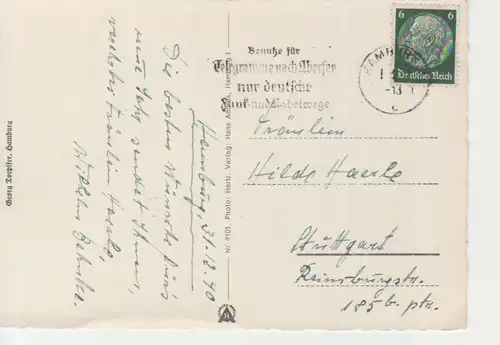 Georg Koepister, Hamburg
Hamburg, 31.12.40
Die besten Wünsche fürs
neue Jahr sendet Ihnen,
verehrtes Fräulein Haerle,
Wilhelm Behnke.
Nr. 9101. Photo: Hartz. Verlag: Hans Hamburg 1
Benutze für
Telegramme nach Übersee
nur deutsche
Funk- und Kabelwege
HAMBURG
6 6
Deutsches Reich
Fräulein
Hilde Haerle
Stuttgart
Reinsburgstr.
185 b. ptr.